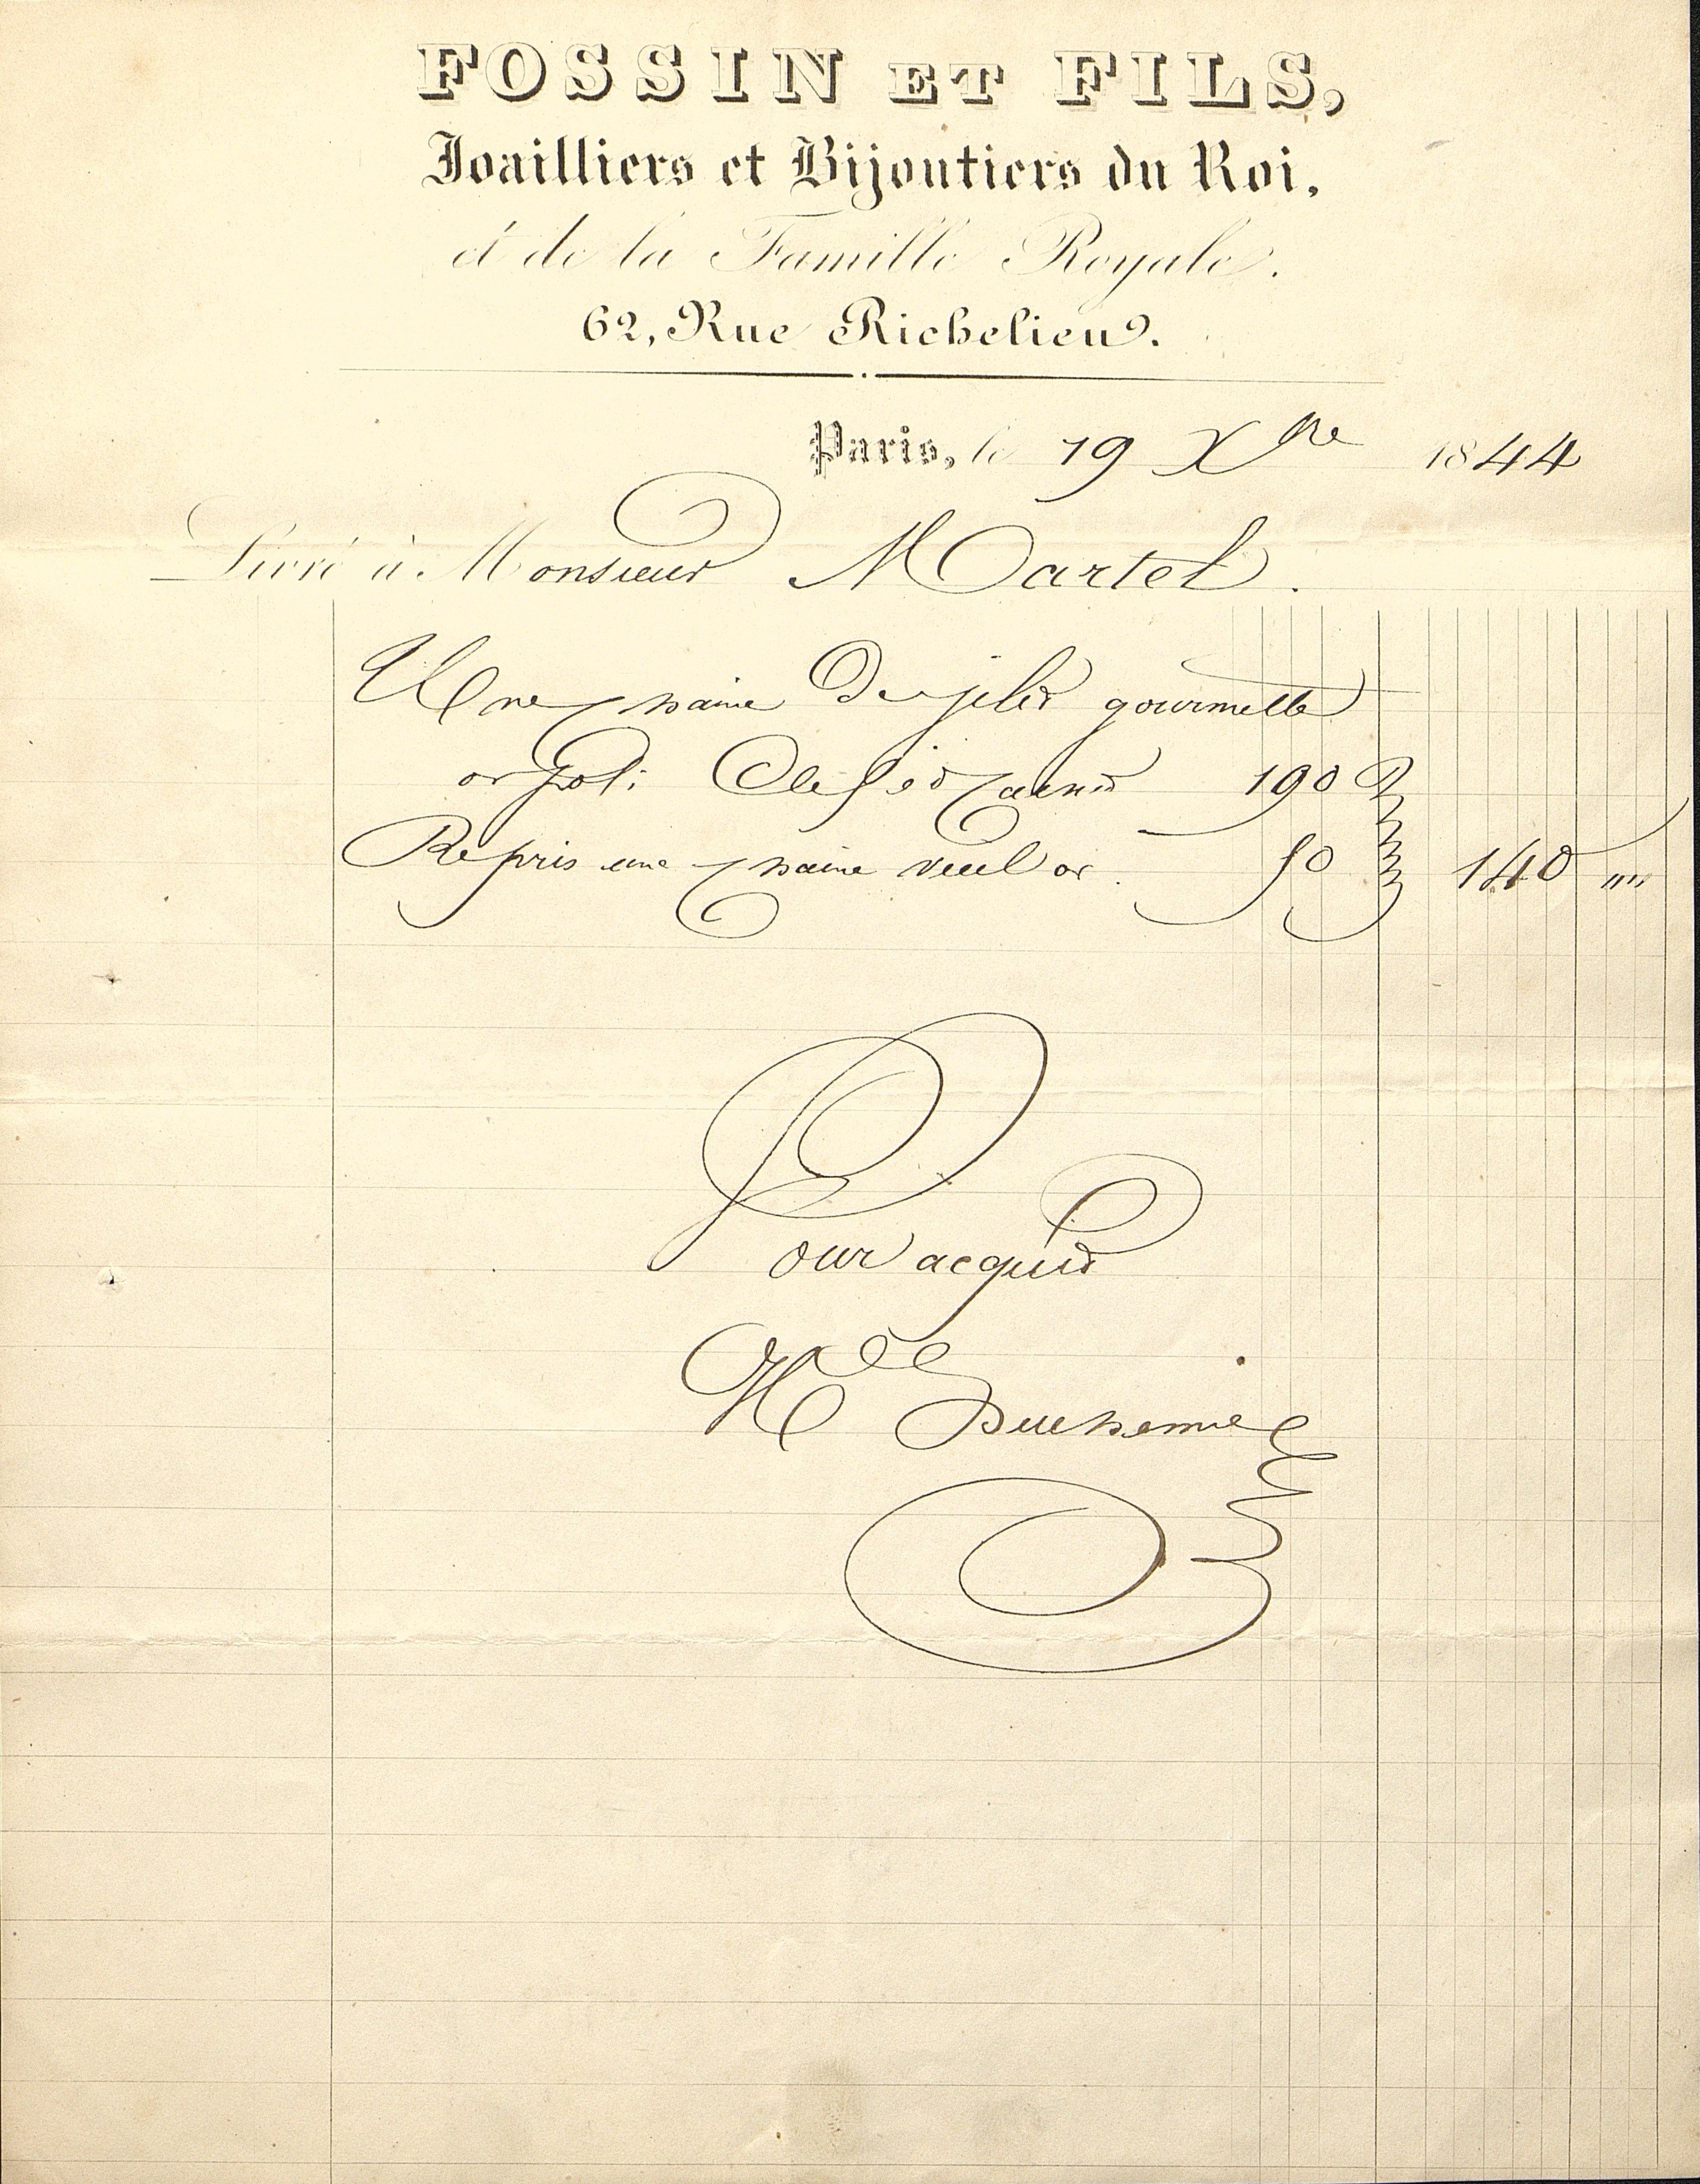 FOSSIN ET FILS,
Joailliers et Bijoutiers du Roi,
et de la Famille Royale.
62, Rue Richelieu.
Paris, le 19 Xbre 1844
Livré à Monsieur Martel.
Une chaine de gilet gourmette
or poli Clef id 190
Repris une chaine vieil or. 50 140 "''
Pour acquit
Duchenne